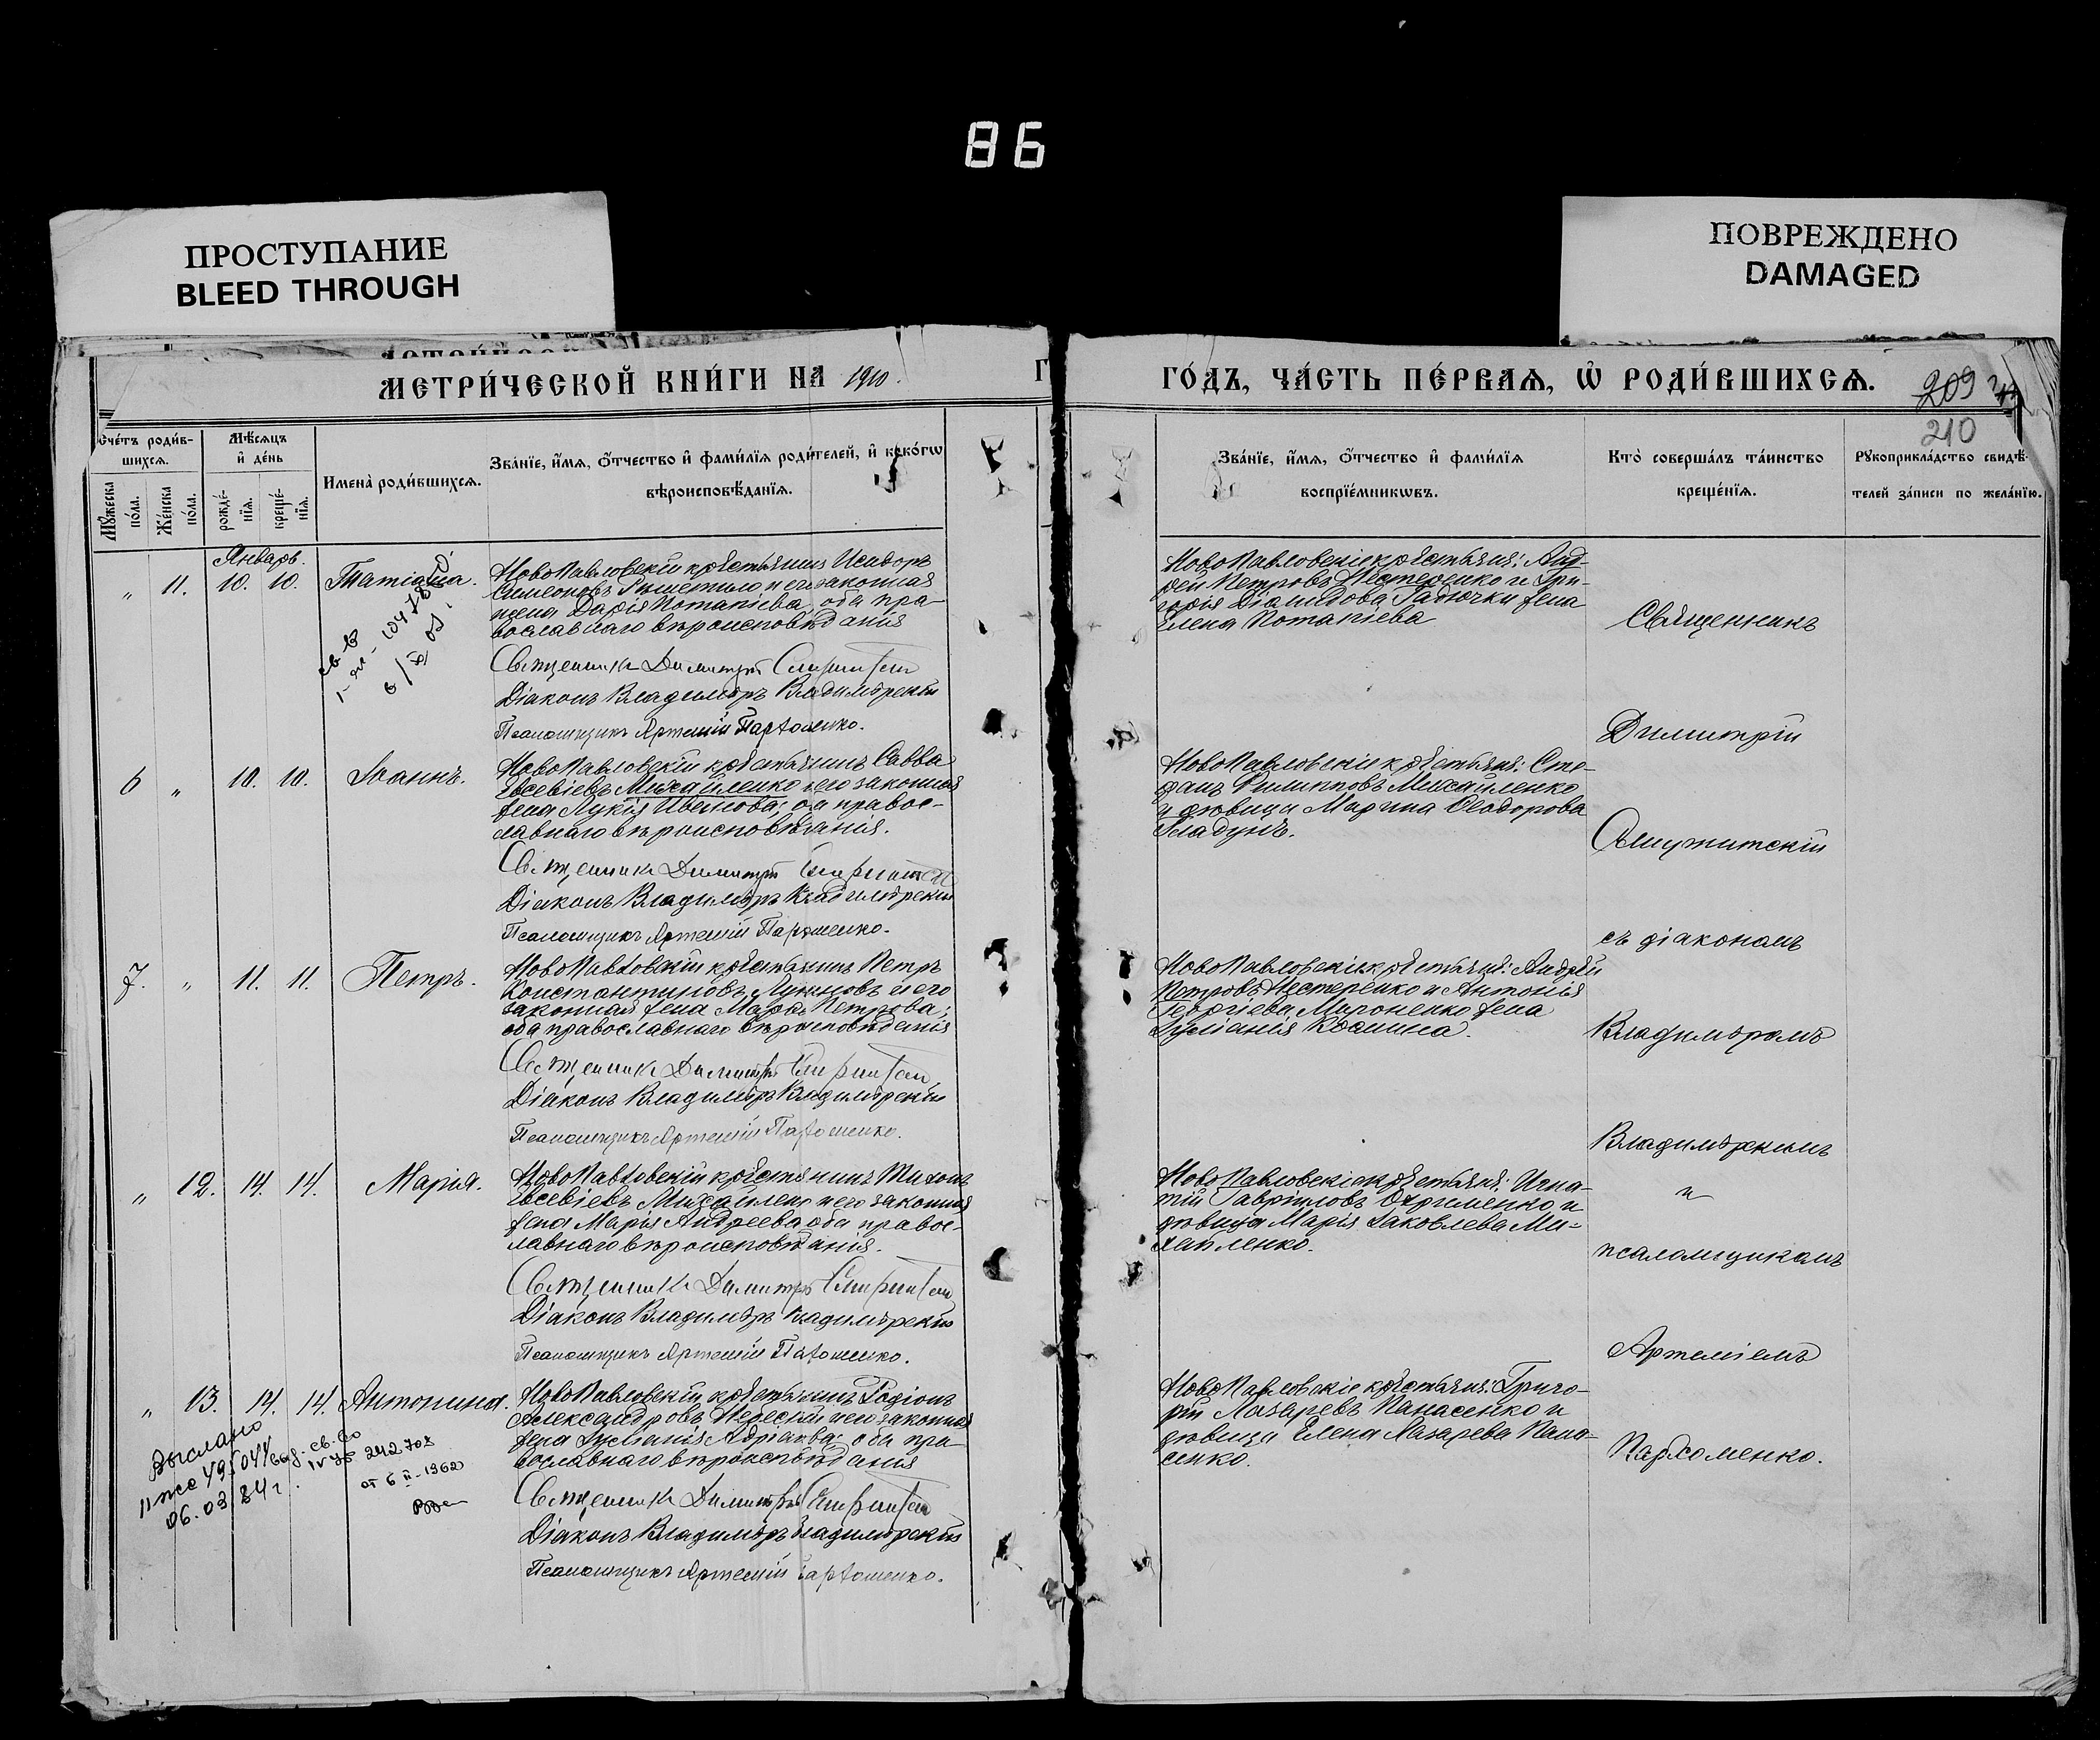 86
ПРОСТУПАНИЕ
BLEED THROUGH
ПОВРЕЖДЕНО
DAMAGED
МЕТРИ́ЧЕСКОЙ КНИ́ГИ НА 1910.
ГО́ДЪ, ЧА́СТЬ ПЕ́РВАѦ, Ѡ РОДИ́ВШИХСѦ.
209
210
Счéтъ роди́в-
шихсѧ.
Мѣ́сѧцъ
и҆ де́нь
Мꙋ́жеска
по́ла.
Же́нска
по́ла.
рожде́-
нїѧ.
креще́-
нїѧ.
Имена̀ роди́вшихсѧ.
Зва́нїе, и҆́мѧ, ѻ҆́тчество и҆ фами́лїѧ роди́телей, и҆ како́гѡ
вѣроисповѣ́данїѧ.
Зва́нїе, и҆́мѧ, ѻ҆́тчество и҆ фами́лїѧ
воспрїе́мникѡвъ.
Кто̀ соверша́лъ та́инство
креще́нїѧ.
Рꙋкоприкла́дство свидѣ́-
телей за́писи по жела́нїю.
Январь.
„ 11. 10. 10. Татіана.
НовоПавловскій крестьянинъ Исидоръ
Симеоновъ и его законная
жена Дарія Потапіева, оба пра-
вославнаго вѣроисповѣданія
Священникъ Димитрій
Діаконъ Владиміръ Владимірскій
Псаломщикъ Артемій Пархоменко.
НовоПавловскіе крестьяне: Анд-
рей Петровъ Нестеренко и Гри-
горія Діамидова Гадючки жена
Елена Потапіева
6 „ 10. 10. Іоаннъ.
НовоПавловскій крестьянинъ Савва
Евсевіевъ Михайленко и его законная
жена Лукія Ивановa; оба правос-
лавнаго вѣроисповѣданія.
Священникъ Димитрій
Діаконъ Владиміръ Владимірскій
Псаломщикъ Артемій Пархоменко.
НовоПавловскіе крестьяне: Сте-
фанъ Филипповъ Михайленко
и дѣвица Марина Ѳеодорова
Гладунъ.
7. „ 11. 11. Петръ.
НовоПавловскій крестьянинъ Петръ
Константиновъ и его
законная жена Марія Петрова;
оба православнаго вѣроисповѣданія
Священникъ Димитрій
Діаконъ Владиміръ Владимірскій
Псаломщикъ Артемій Пархоменко.
НовоПавловскіе крестьяне: Андрей
Петровъ Нестеренко и Антонія
Георгіева Мироненко жена
Іуліанія
„ 12. 14. 14. Марія.
НовоПавловскій крестьянинъ Тихонъ
Евсевіевъ Михайленко и его законная
жена Марія Андреева оба правос-
лавнаго вѣроисповѣданія.
Священникъ Димитрій
Діаконъ Владиміръ Владимірскій
Псаломщикъ Артемій Пархоменко.
НовоПавловскіе крестьяне: Игна-
тій Гавріиловъ Охрименко и
дѣвица Марія Іаковлева Ми-
хайленко.
„ 13. 14. 14. Антонина.
НовоПавловскій крестьянинъ Родіонъ
Александровъ и его законная
жена Іуліанія оба пра-
вославнаго вѣроисповѣданія
Священникъ Димитрій
Діаконъ Владиміръ Владимірскій
Псаломщикъ Артемій Пархоменко.
НовоПавловскіе крестьяне: Григо-
рій Лазаревъ Панасенко и
дѣвица Елена Лазарева Пана-
сенко.
Выслано
06.03.84г.
242702
Священникъ
Димитрій
съ діакономъ
Владиміромъ
Владимірскимъ
и
псаломщикомъ
Артеміемъ
Пархоменко.